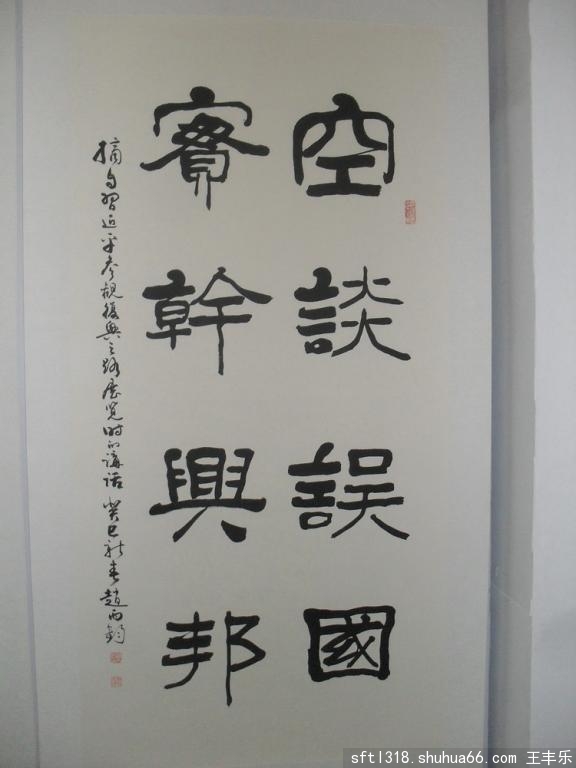 空談誤國
實幹興邦
摘自習近平參觀復興之路展覽時的講話 癸巳新春趙西鈞
sftl318.shuhua66.com 王丰乐